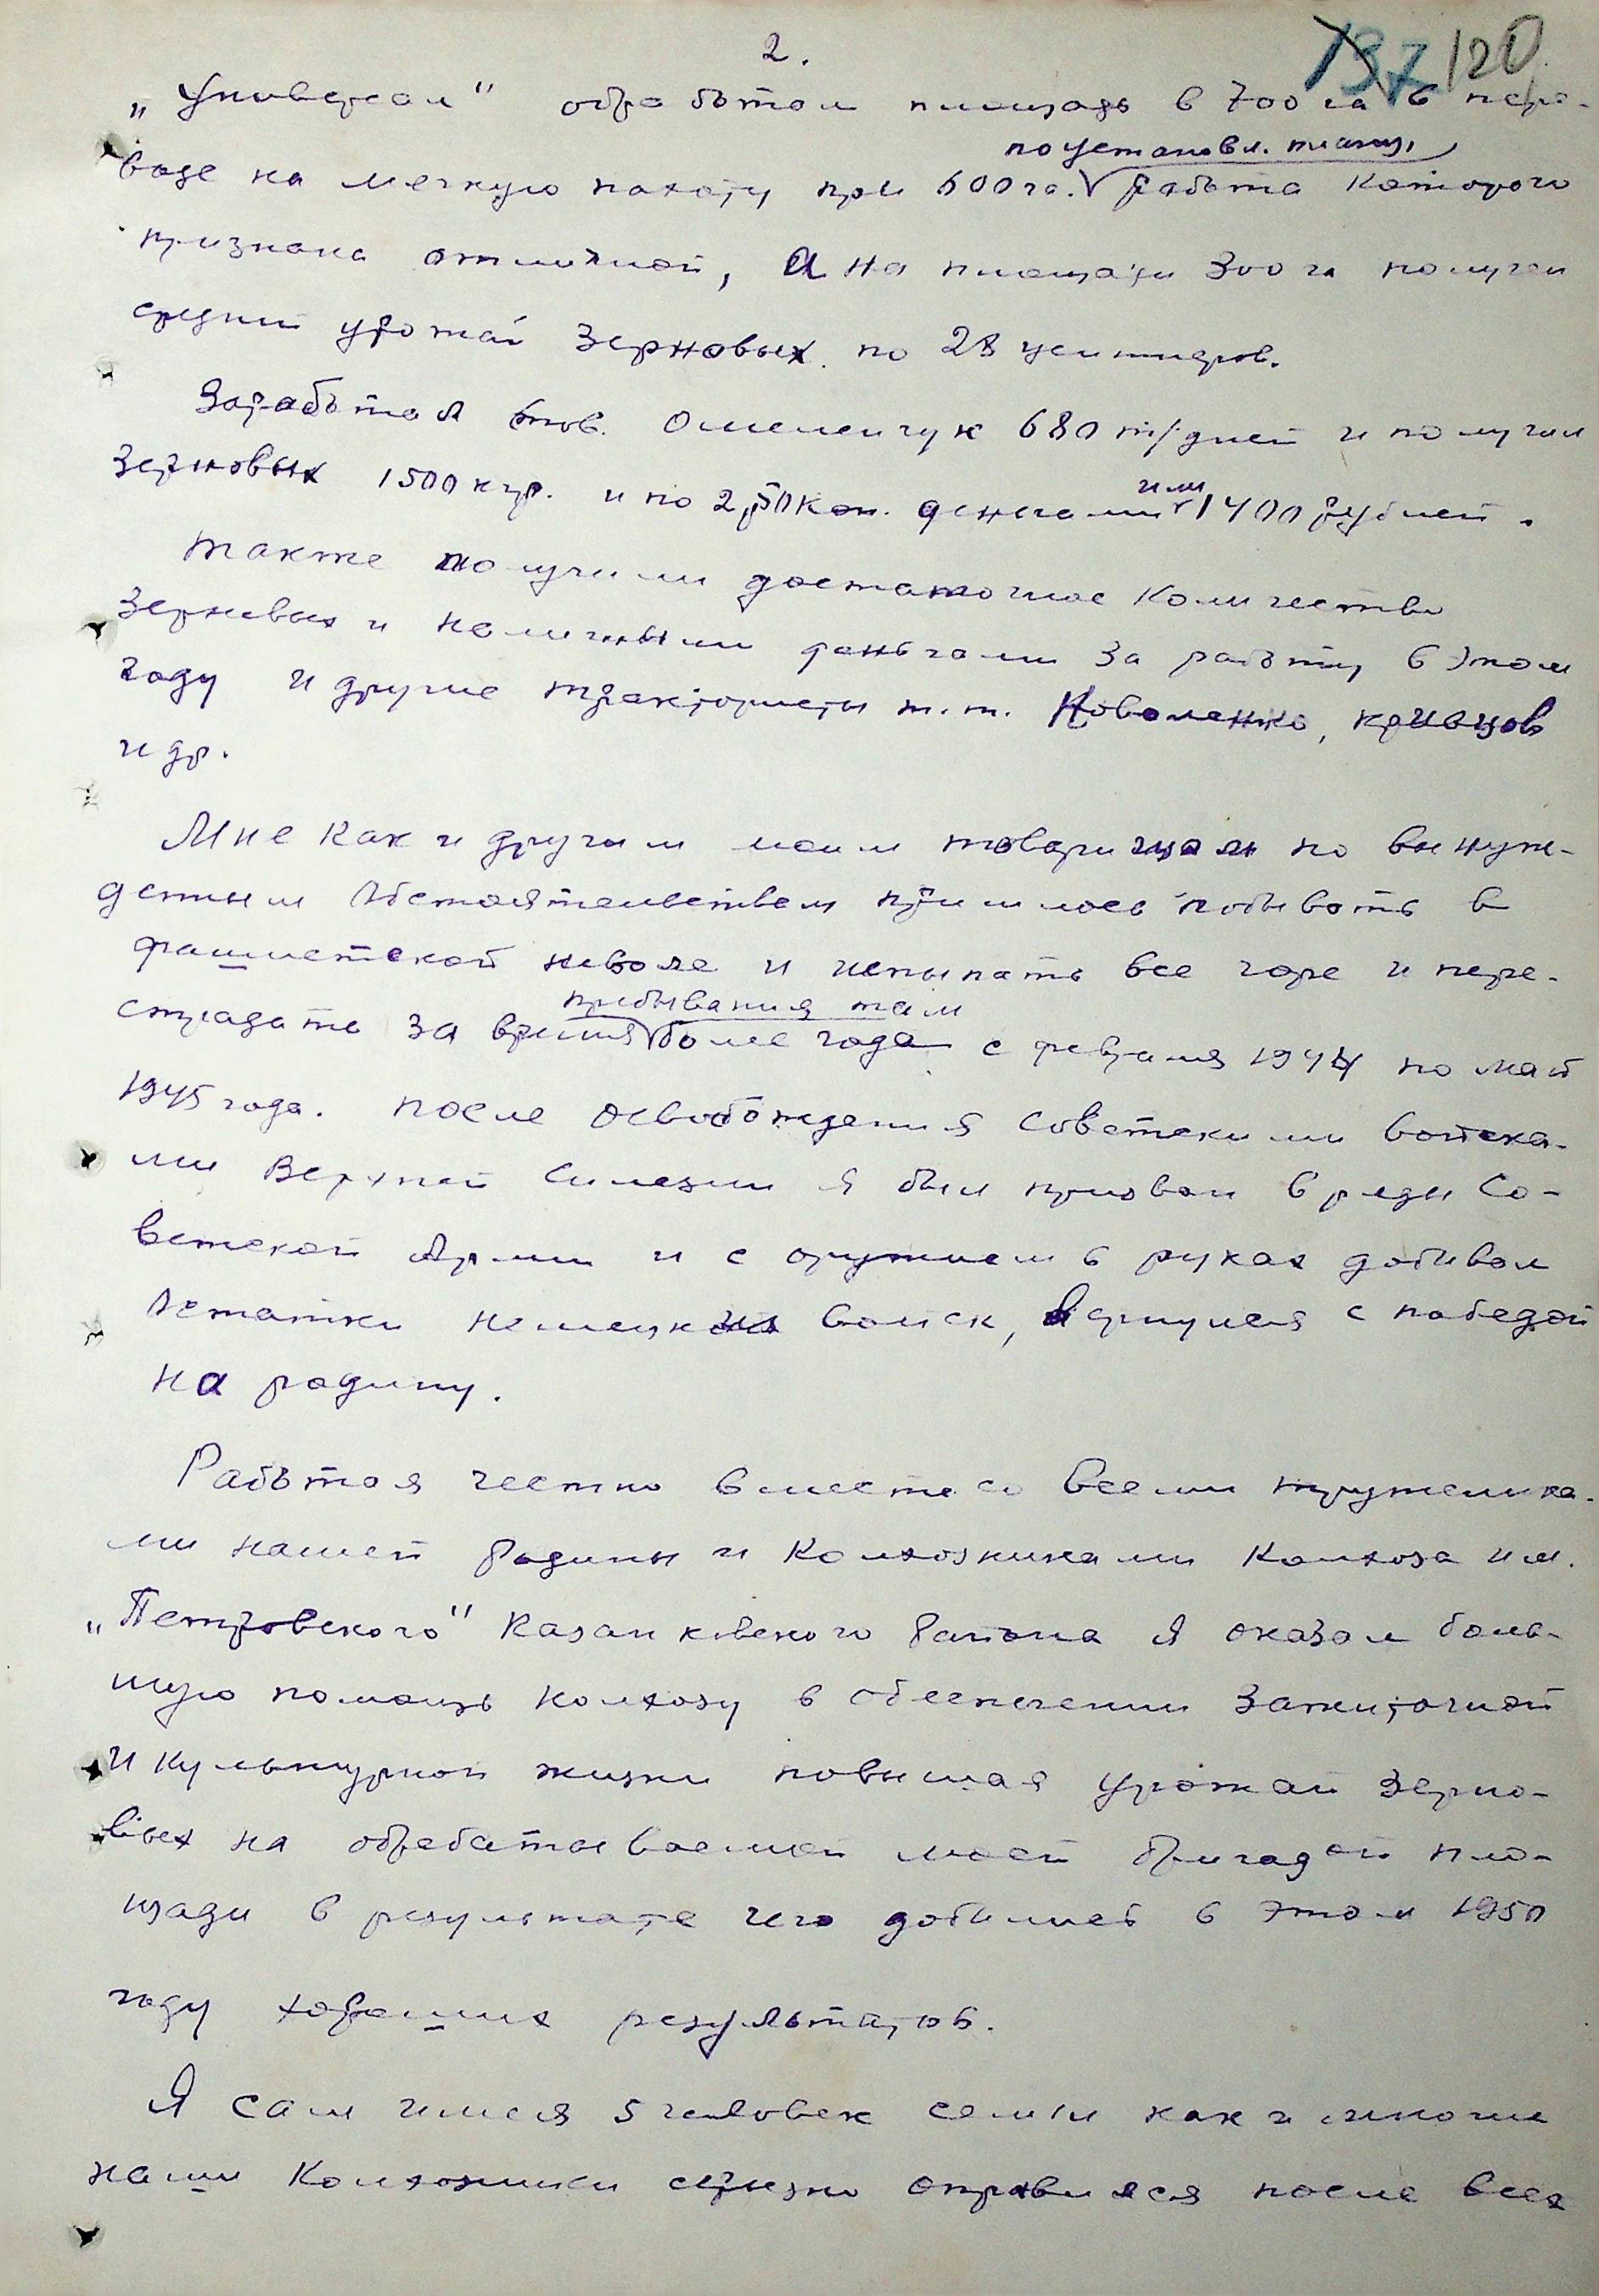 2.
137 120
„Универсал" обработал площадь в 700 га в пере-
по установл. плану,
воде на мягкую пахоту при 600 га. работа которого
признана отличной, а на площади 300 га получен
средний урожай зерновых по 28 центнеров.
Заработал тов. Омеленчук 680 т/дней и получил
или
зерновых 1500 кгр. и по 2,50 коп. деньгами 1400 рублей.
Также получили достаточное количество
зерновых и наличными деньгами за работу в этом
году и другие трактористы т.т. Коваленко, Кривцов
и др.
Мне как и другим моим товарищам по вынуж-
денным обстоятельствам пришлось побывать в
фашистской неволе и испытать все горе и пере-
пребывания там
страдать за время более года с февраля 1944 по май
1945 года. После освобождения советскими войска-
ми Верхней Силезии я был призван в ряды Со-
ветской Армии и с оружием в руках добивал
остатки немецких войск, вернулся с победой
на родину.
Работая честно вместе со всеми тружелика-
ми нашей Родины и колхозниками колхоза им.
„Петровского" Казанковского района я оказал боль-
шую помощь колхозу в обеспечении зажиточной
и культурной жизни повышая урожаи зерно-
вых на обрабатываемой моей бригадой пло-
щади в результате чего добились в этом 1950
году хороших результатов.
Я сам имея 5 человек семьи как и многие
наши колхозники оправился после всех